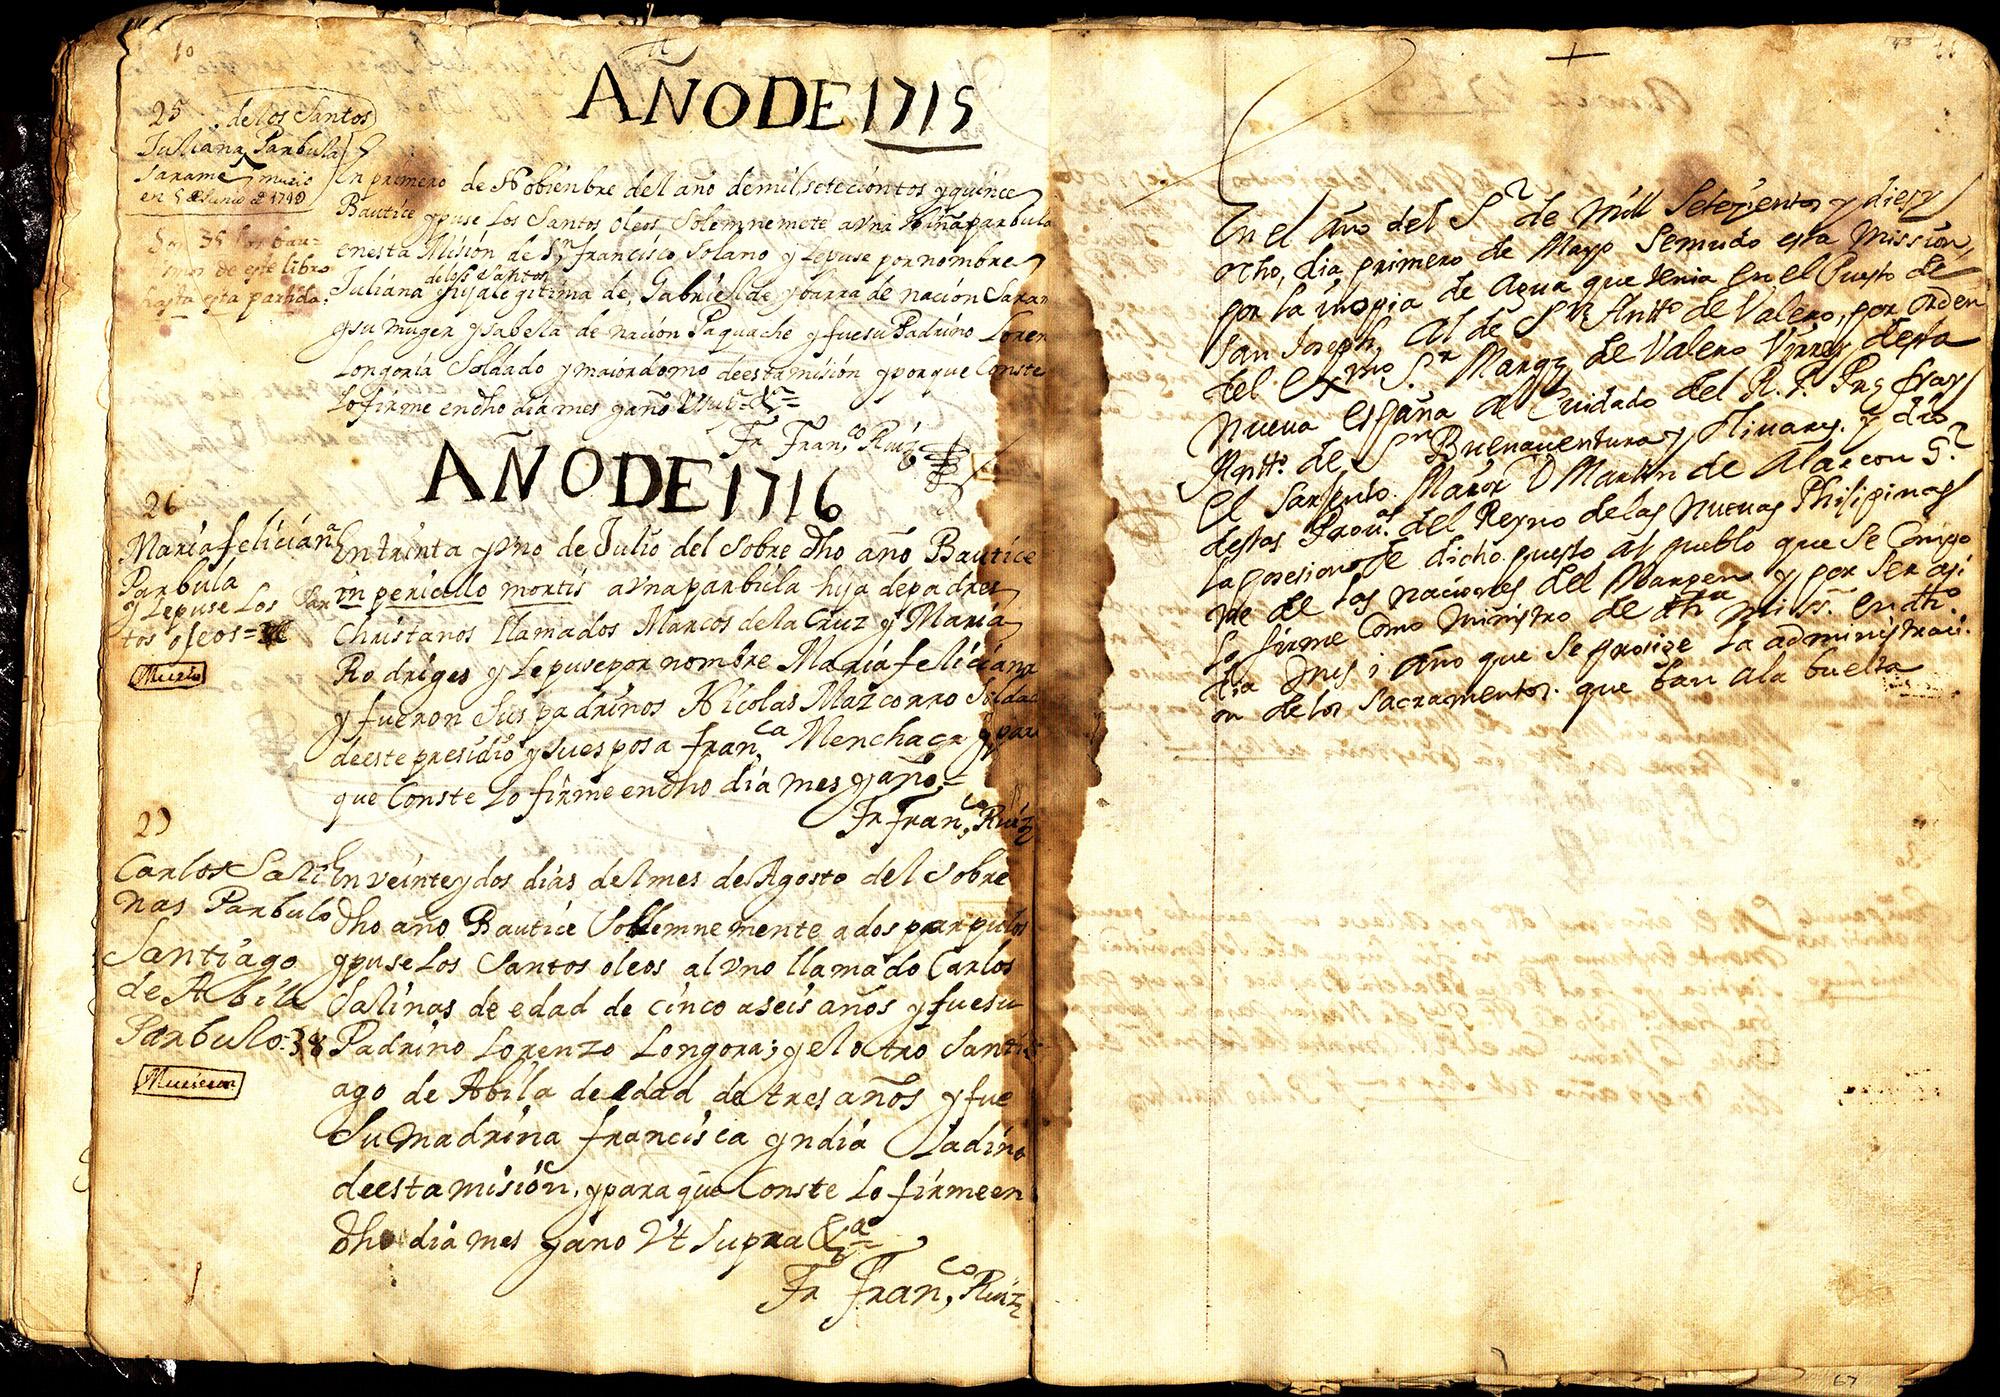 10
AÑO DE 1715
25 de los Santos
Juliana Parbula
Sarame murio
en 5 de Junio de
Son 35 los bau-
de este libro
hasta esta partida.
en primero de Nobienbre del año demil setecientos y quince
Bautice y puse Los Santos oleos Solemnemete a vna Niña parbula
en esta Misión de Sn francisco Solano y Lepuse por nombre
de los Santos
Juliana hija legitima de Gabriel de ybarra de nación Saram
y su muger ysabela de nación Paquache y fue su Padrino Loren
Longoria Soldado y maiordomo de esta misión y porque Conste
Lo firme en dho dia mes y año
Fr Franco Ruiz
AÑO DE 1716
26
Maria feliciana
Parbula
y Lepuse Los San
tos oleos=
Murio
En trinta y vno de Julio del sobre dho año Bautice
in periculo mortis a vna parbula hija de padres
Christanos llamados Marcos de la Cruz y Maria
Rodriges y Lepuse por nombre Maria feliciana
y fueron Sus padrinos Nicolas Mazcorro Soldad
de este presidio y su esposa franca Menchaca y para
que Conste Lo firme en dho dia mes y año=
Fr Franco Ruiz
27
Carlos Sali
nas Parbulo
Santiago
de Abila
Parbulo.38
Murieron
En veinte y dos dias del mes de Agosto del Sobre
dho año Bautice Sollemnemente a dos parpulos
y puse Los Santos oleos al vno llamado Carlos
Salinas de edad de cinco a seis años y fue su
Padrino Lorenzo Longora; y el otro Santi
ago de Abila de edad de tres años y fue
Su madrina francisca yndia Ladina
de esta misión, y para que Conste Lo firme en
dho dia mes y ano Vt Supra &a=
Fr Franco Ruiz
En el Año del Sr de Mill Setezientos y diesy
ocho, dia primero de Mayo Semudo esta Mission,
por la inopia de Agua que tenia en el Puesto de
San Joseph, al de Sn Antto de Valero, por orden
del Exmo Sr Marqz de Valero Virrey desta
Nueva españa al Cuidado del R. P. Prz fray
Antto. de Sn Buenaventura y Olivares. y dio
el Sargento Maior D Martin de Alarcon Gr
destas Prova. del Reyno delas Nuevas Philipinas
la posesion de dicho puesto al pueblo que Se Compo
ne de las naciones del Margen y por Ser asi
lo firme Como Ministro de dha Miss. en dho
dia mes i Año que Se prosige la administraci.
on de los Sacramentos. que ban ala buelta
67